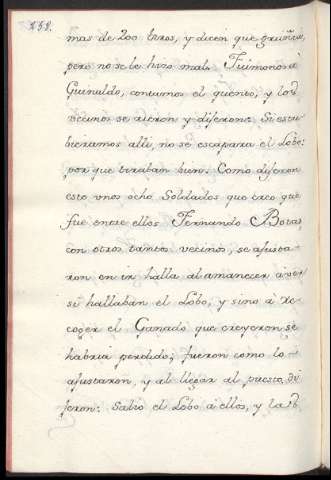 mas de 200 tiros, y dicen que gruñía,
pero no se le hizo mal. Fuimonos a
Guinaldo, contamos el quento, y los
vecinos se rieron y dijeron: Si estu
bieramos alli, no se escapara el Lobo:
por que tiraban bien. Como dijeron
esto unos ocho Soldados que creo que
fué entre ellos Fernando Botas,
con otros tantos vecinos, se ajusta-
ron en ir halla al amanecer a ver
si hallaban el Lobo, y sino a re-
coger el Ganado que creyeron se
habria perdido; fueron como lo
ajustaron, y al llegar al puesto di
jeron: Salió el Lobo a ellos, y la